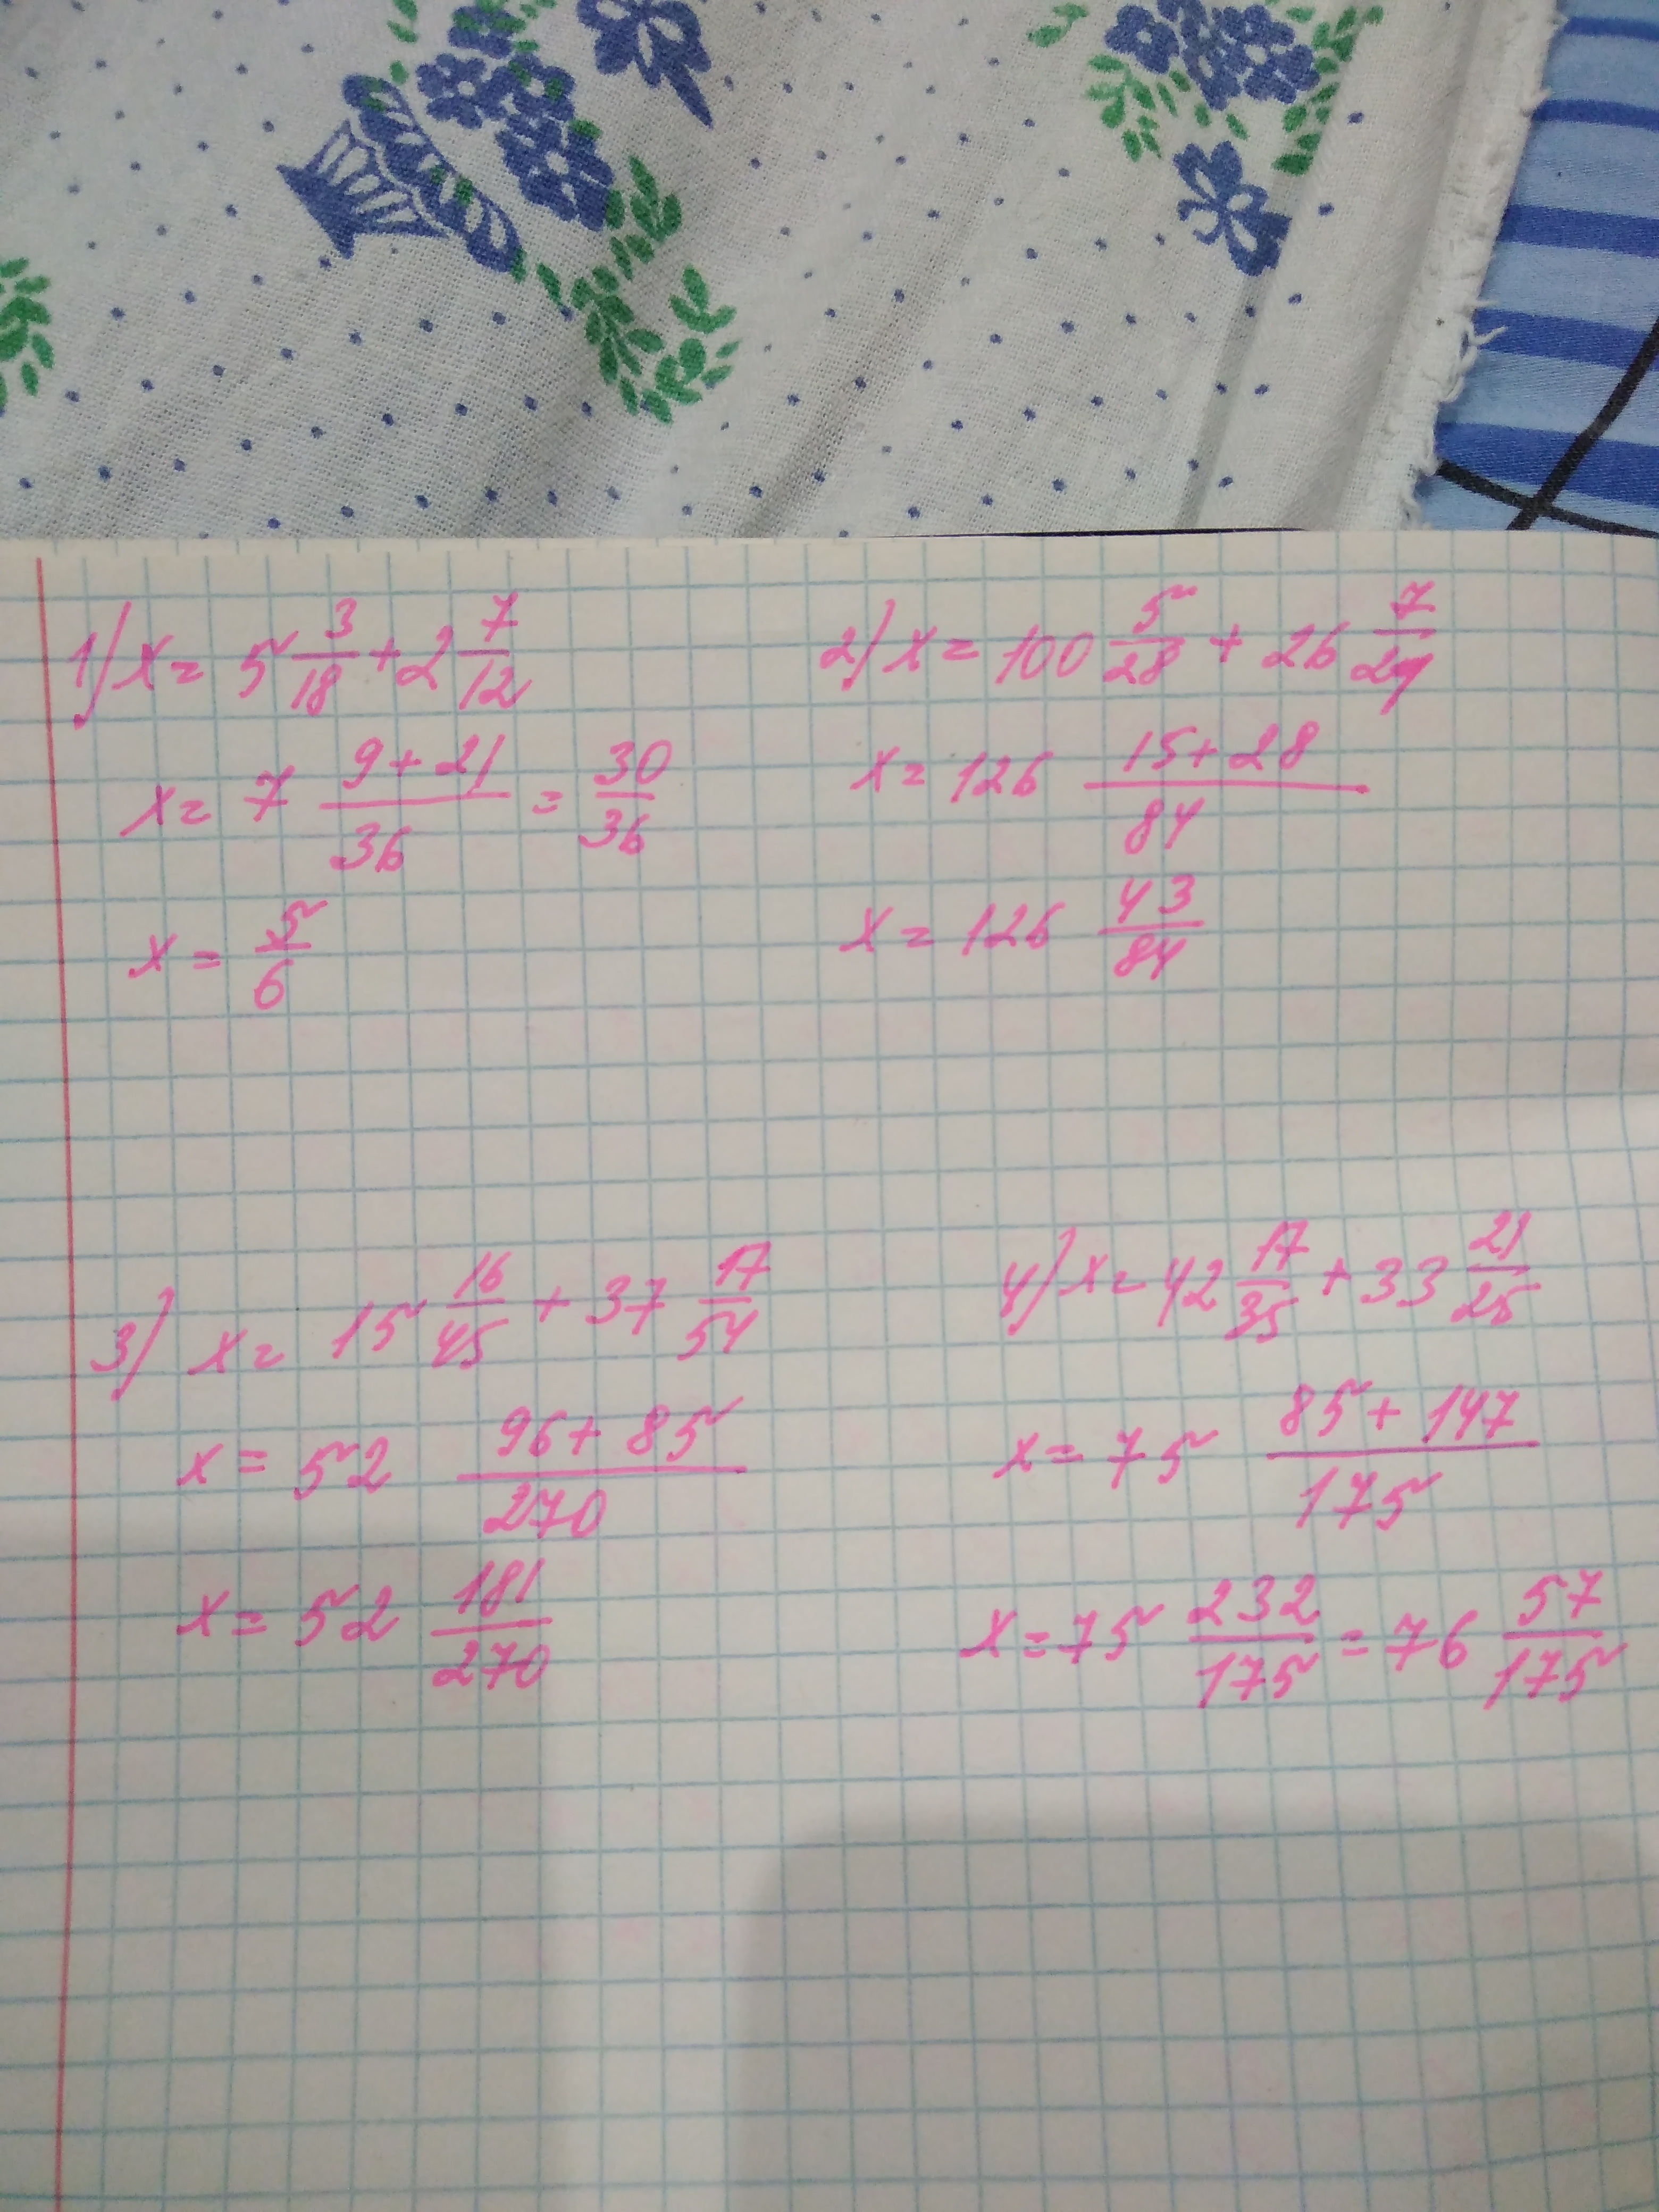 1) x = 5 3/18 + 2 7/12
x = 7 (9 + 21)/36 = 30/36
x = 5/6
2) x = 100 5/28 + 26 7/
x = 126 (15 + 28)/84
x = 126 43/84
3) x = 15 16/45 + 37 17/54
x = 52 (96 + 85)/270
x = 52 181/270
4) x = 42 17/35 + 33 21/25
x = 75 (85 + 147)/175
x = 75 232/175 = 76 57/175